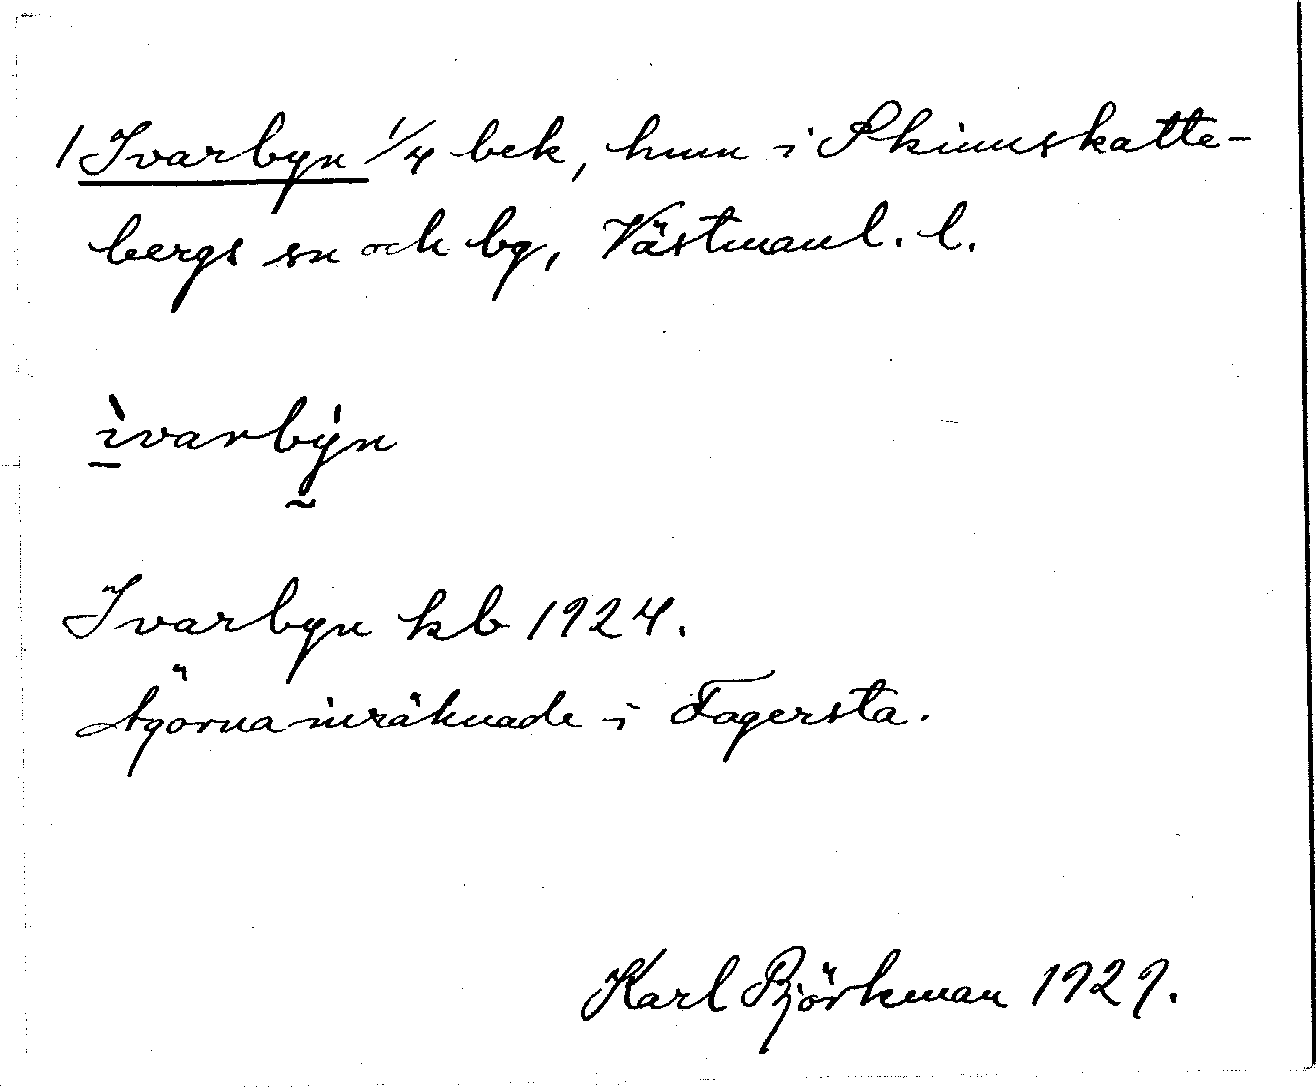 1 Ivarbyn 1/4 bek, hmn i Skinnskatte-
bergs sn och bg, Västmanl. l.
ìvarby̍n
Ivarbyn kb 1924.
Ägorna inräknade i Fagersta.
Karl Björkman 1929.